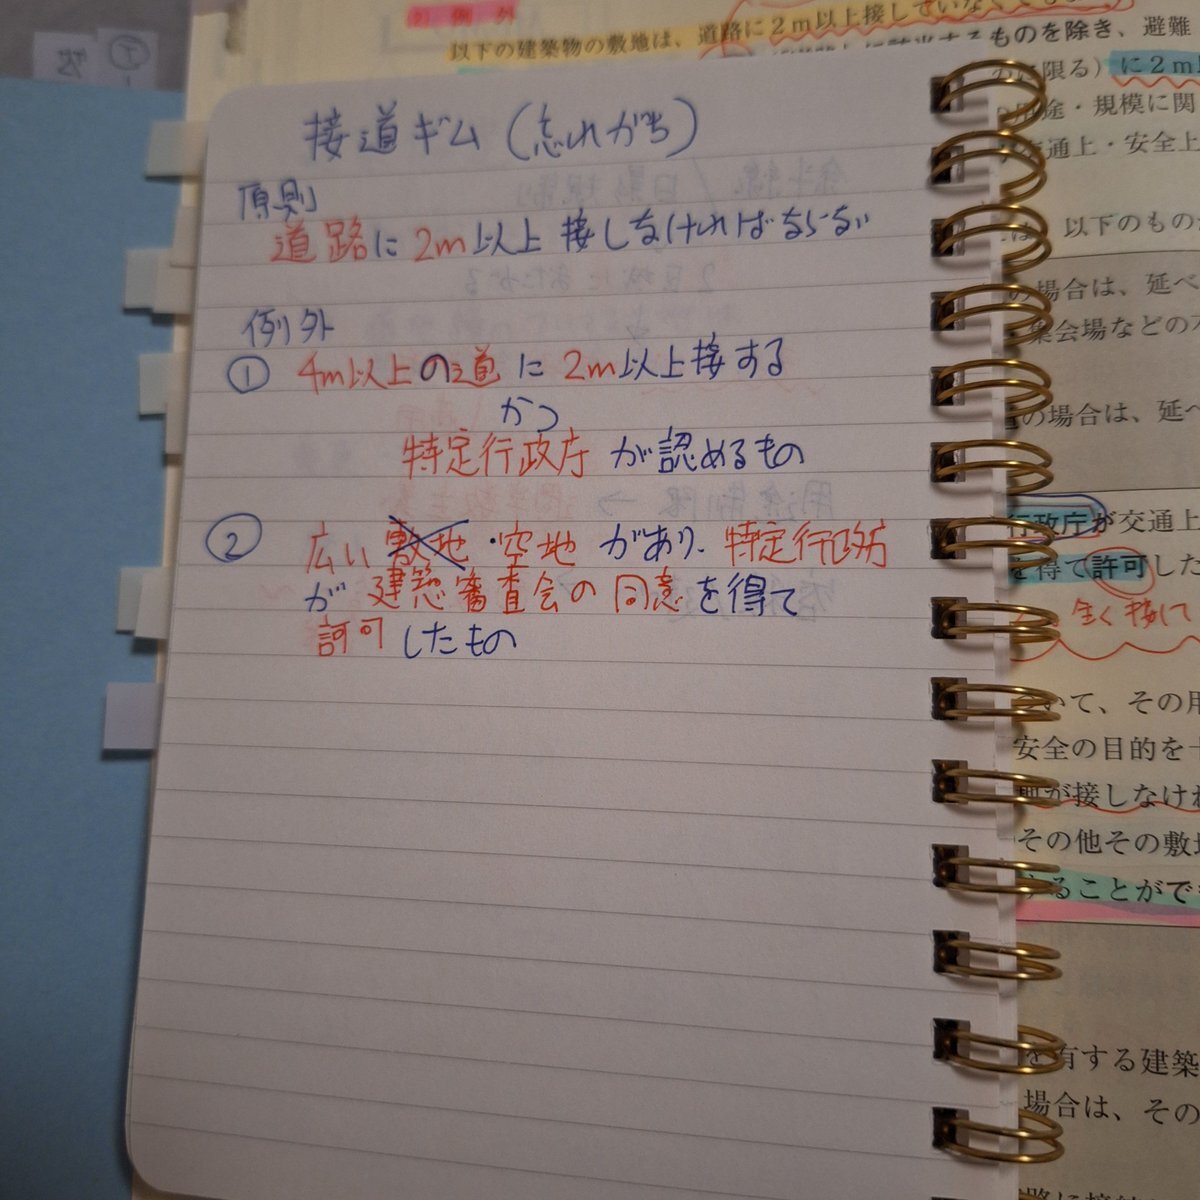 接道ギム(忘れがち)
原則
道路に2m以上接しなければならない
例外
① 4m以上の道に2m以上接する
かつ
特定行政庁が認めるもの
② 広い敷地・空地があり、特定行政庁
が建築審査会の同意を得て
許可したもの
2) 例外
以下の建築物の敷地は、道路に2m以上接していなくても
ものを除き、避難
に限る)に2m以
用途・規模に関
交通上・安全上
以下のもの
の場合は、延べ
集会場などの
の場合は、延べ
行政庁が交通上
を得て許可した
全く接して
ついて、その用
安全の目的を
が接しなけれ
その他その敷地
することができ
を有する建築
場合は、その